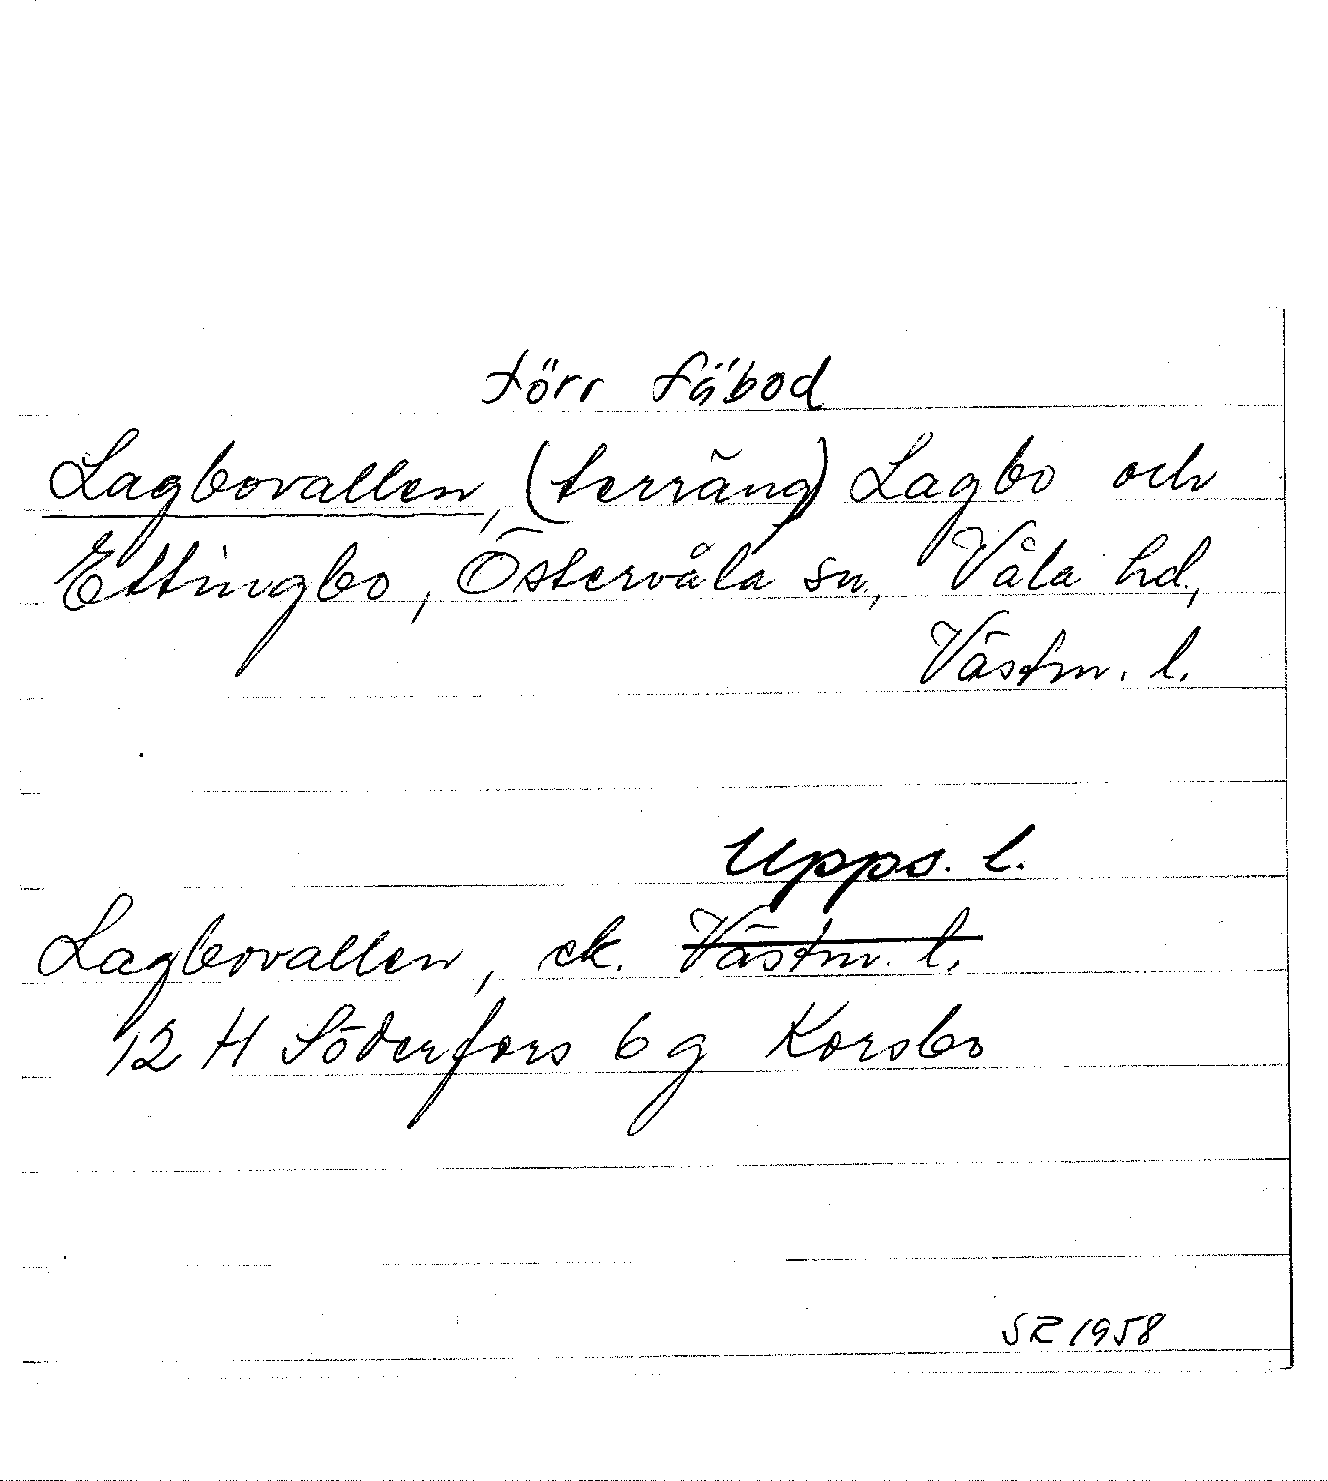 förr fäbod
Lagbovallen, (terräng) Lagbo och
Ettingbo, Östervåla sn, Våla hd,
Västm. l.
Upps. l.
Lagbovallen, ek. Västm. l.
12 H Söderfors 6 g Korsbo
SR 1958